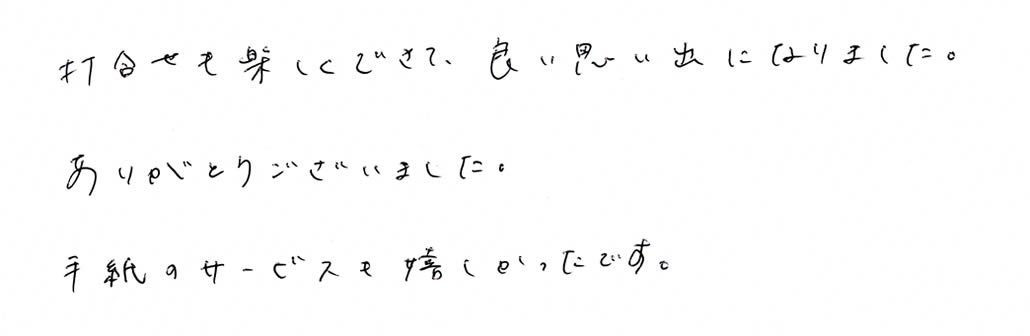 打合せも楽しくできて、良い思い出になりました。
ありがとうございました。
手紙のサービスも嬉しかったです。